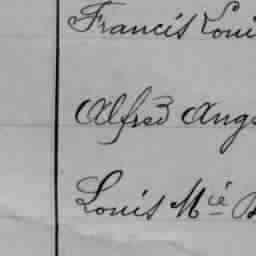 Francis Loui
Alfred Aug
Louis Mcié